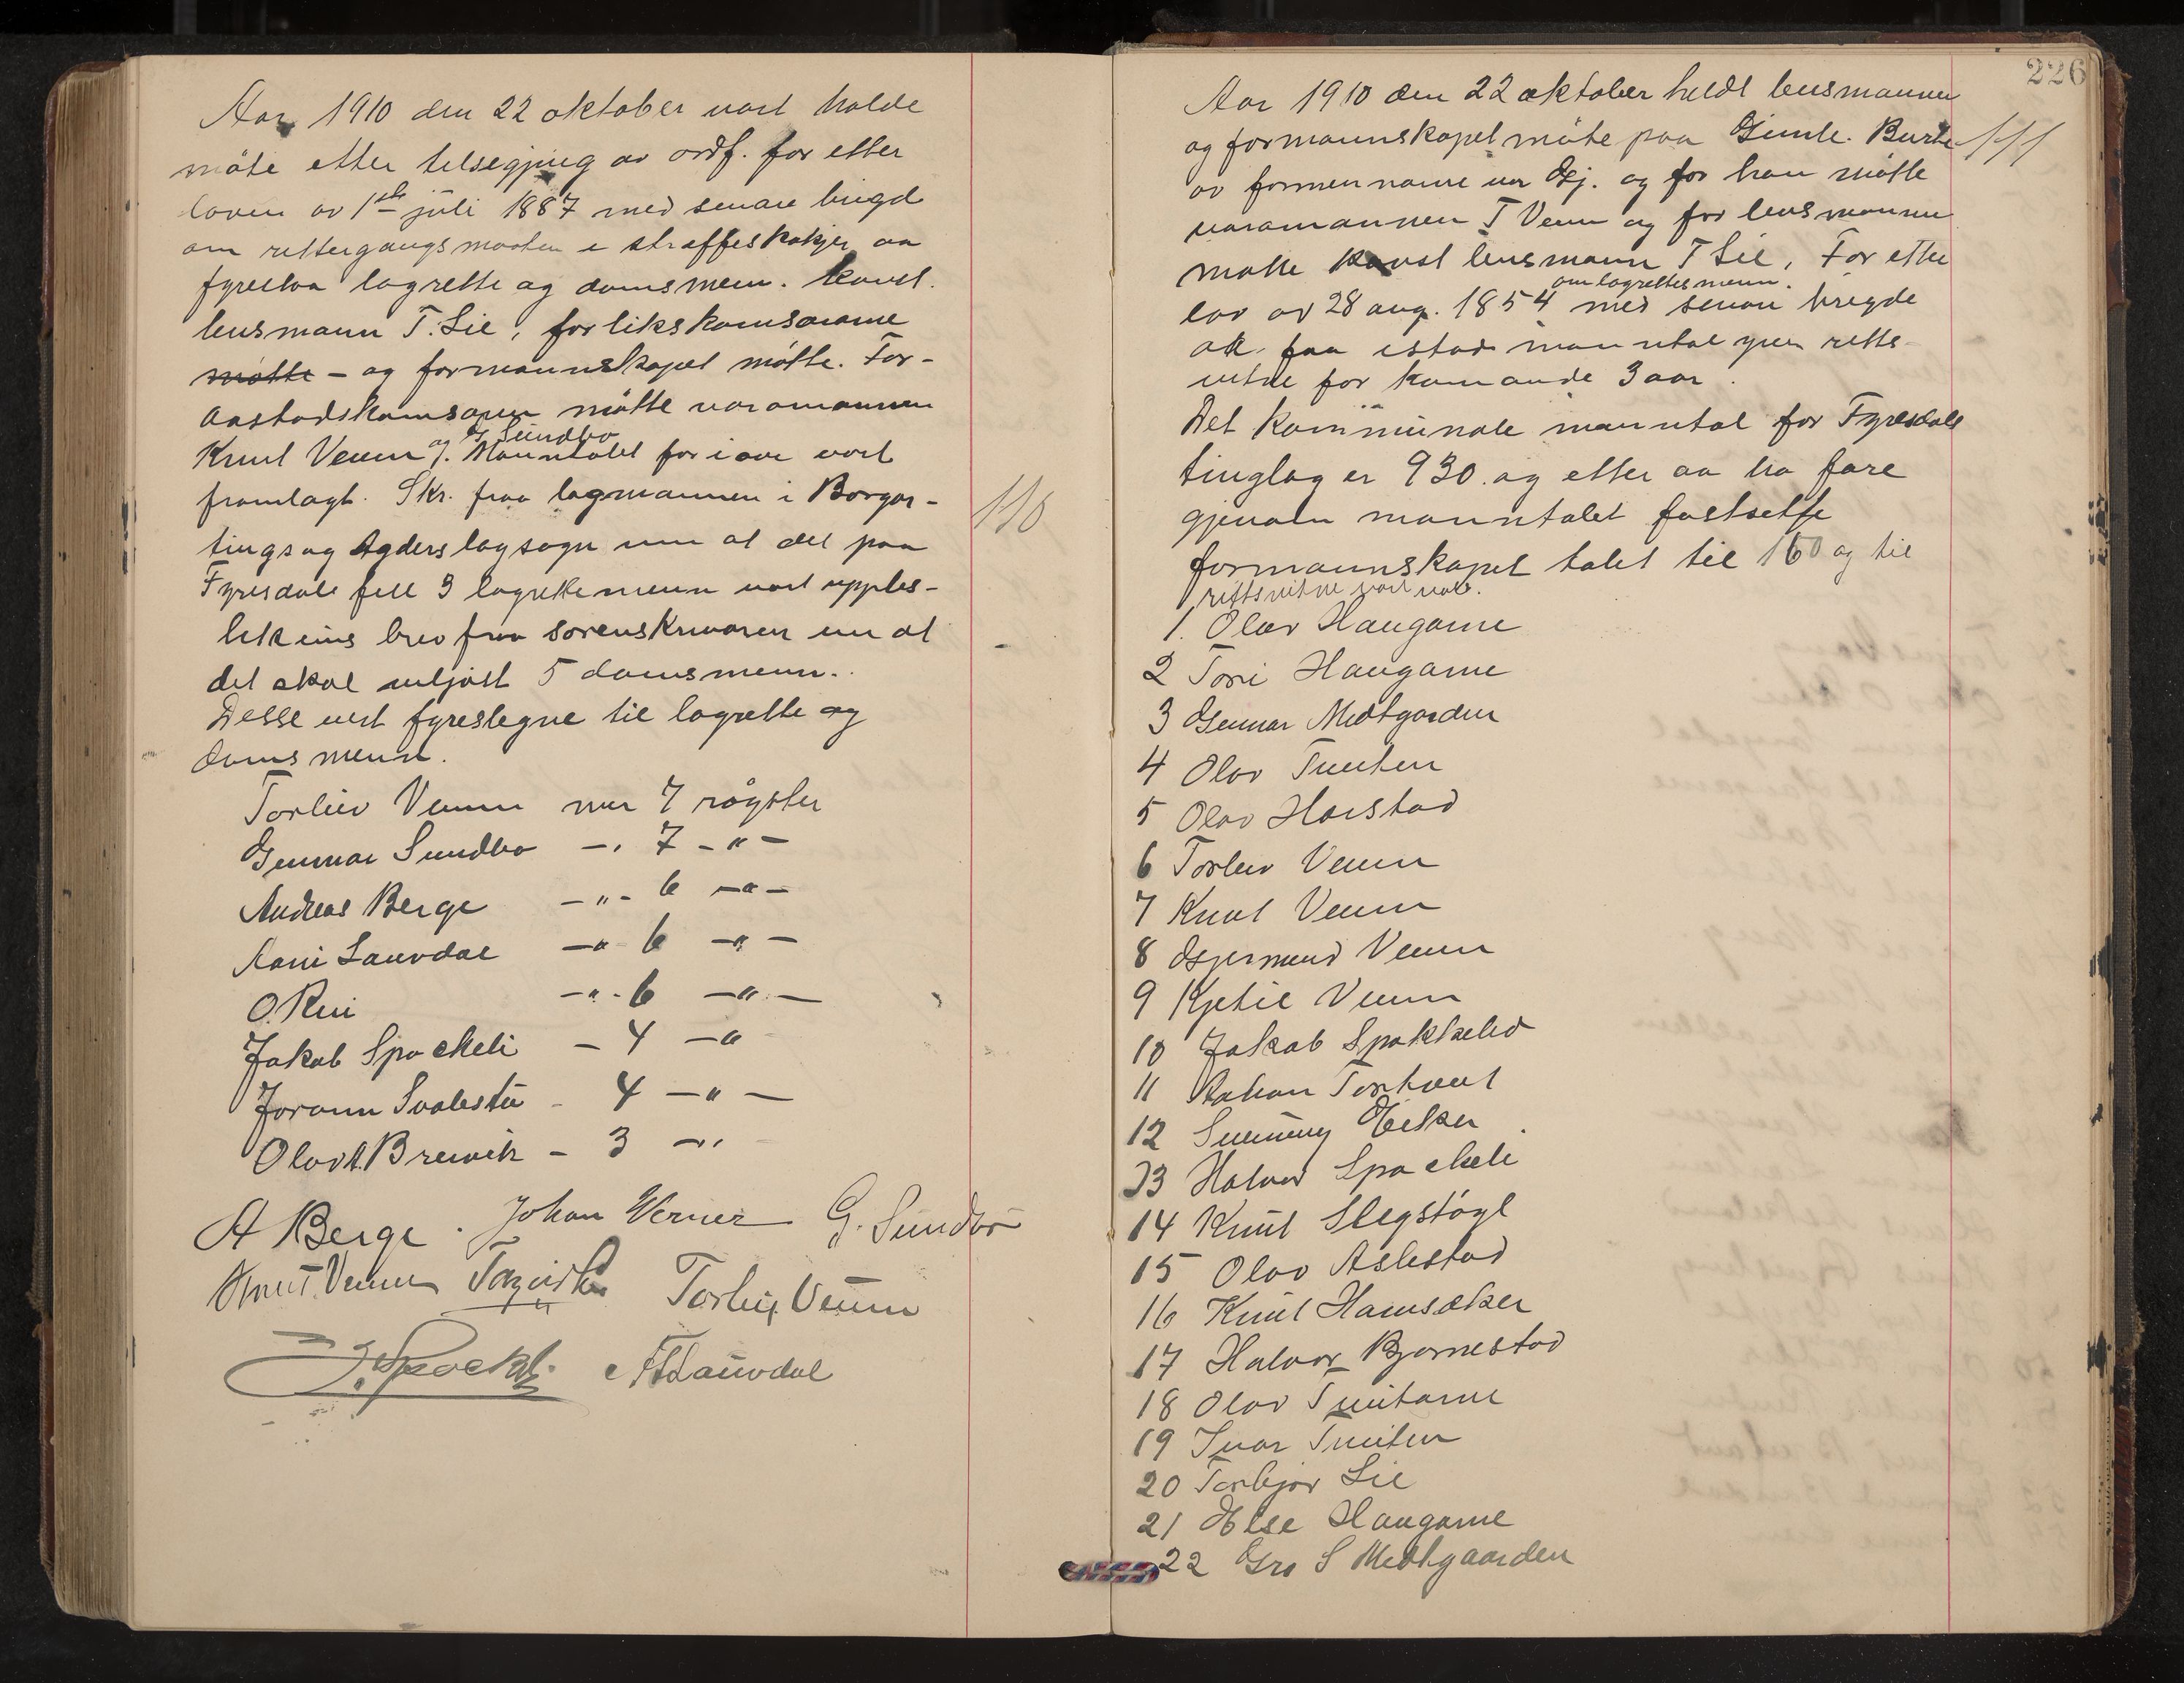 Aar 1910 den 22 oktober vart halde
møte etter tilsegjing av ordf. for etter
loven av 1ste júli 1887 med senare brigd
om rettergangsmaaten i straffeskakjer aa
fyreslaa lagrette og domsmenn. Konst.
lensmann T. Lie, forlikskomsarane
møtte - og formannskapet møtte. For-
aastadskomsaren møtte varamannen
Knut Veum og G Sundbø
/. Manntalet for i aar vart
framlagt. Skr. fraa lagmannen i Borgar-
tings og Agders lagsogn um at det paa
Fyresdale fell 3 lagrettemenn vart upples-
likeins brev fraa sorenskrivaren um at
det skal veljast 5 domsmenn.
Desse vert fyreslegne til lagrette og
domsmenn.
Torleiv Veum mer 7 røyster
Gunnar Sundbø -. 7 -"-
Andreas Berge -"- 6 -"-
Aani Lauvdal -" 6 -"-
O. Rui -"- 6 -"-
Jakob Spockeli - 4 -"
Joraan Svalestu - 4 -"-
Olav A. Breivik - 3 -"
110
A Berge. Johan Verner G. Sundbø
Knut Veum Torleiv Veum
J. Spockeli A Lauvdal
226
Aar 1910 den 22 oktober heldt lensmannen
og formannskapet møte paa Gimle. Burte
av formennane var Gj. og for han møtte
varamannen T Veum og for lensmannen
møtte konst lensmann T Lie. For etter
om lagrettesmenn.
lov av 28 aug. 1854 med senare brigde
aa faa istad manntal yver retts-
vitne for komande 3 aar.
Det kommúnale manntal for Fyresdale
tinglag er 930. og etter aa ha fare
gjenom manntalet fastsette
formannskapet talet til 160 og til
rettsvitne vart valt.
111
1. Olav Haugarne
2 Tore Haugarne
3 Gunnar Midtgarden
4 Olav Tveiten
5 Olav Harstad
6 Torleiv Veum
7 Knut Veum
8 Gjermund Veum
9 Kjetil Veum
10 Jakob Spokkelid
11 Torhaut
12
13 Halvor Spockeli
14 Knút Slegstøyl
15 Olav Aslestad
16 Knút Hamsæker
17 Halvor Bjørnestad
18 Olav Tveitane
19 Ivar Tveiten
20 Torbjør Lie
21 Else Haugarne
22 Gro S Midtgaarden